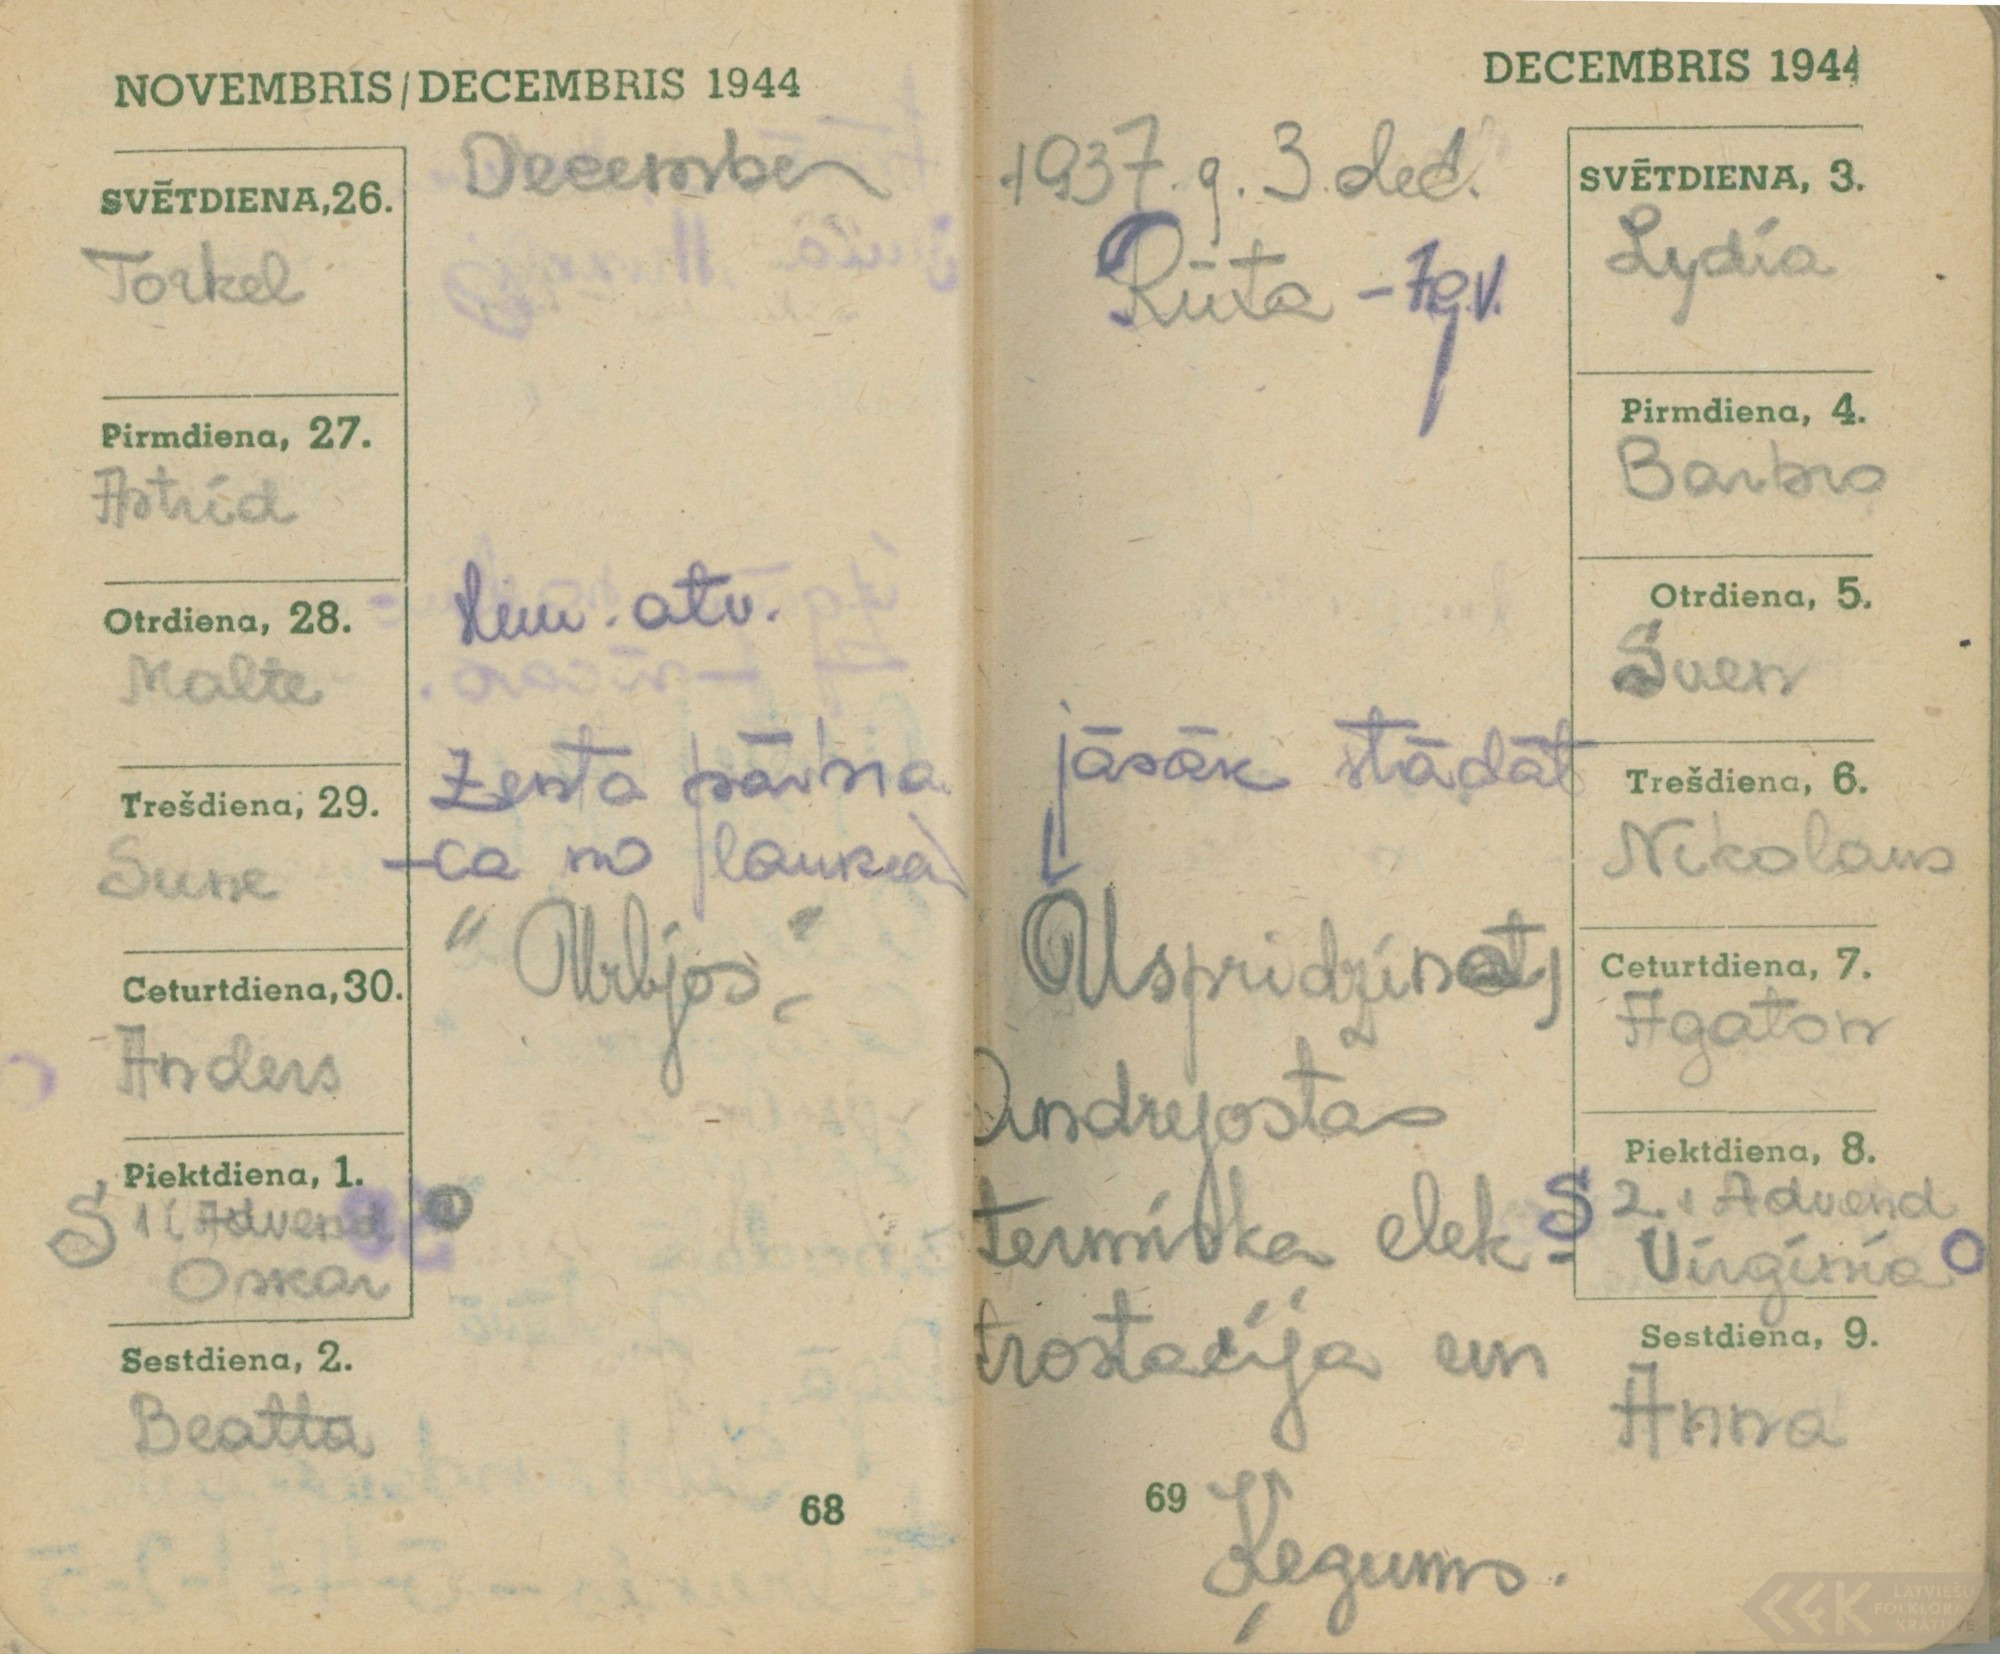 NOVEMBRIS/DECEMBRIS 1944
December
SVĒTDIENA, 26.
Torkel
Pirmdiena, 27.
Astrid
Otrdiena, 28.
atv.
Malte
Trešdiena, 29.
Zenta pārbra
-ca no laukiem
Sune
"Urbjos"
Ceturtdiena, 30.
Anders
Piektdiena, 1.
Š 1. Advend
Oskar
Sestdiena, 2.
Beatta
68
DECEMBRIS 1944
1937. g. 3. dec.
Rūta – 7 g.v.
SVĒTDIENA, 3.
Lydia
Pirmdiena, 4.
Barbro
Otrdiena, 5.
Sven
jāsāk stādāt
Trešdiena, 6.
Nikolaus
Uspridzināt
Ceturtdiena, 7.
Agaton
Andrejostas
Piektdiena, 8.
termiska elek-
Š 2. Advend
Virginia
trostacija un
Sestdiena, 9.
Anna
69
Ķegums.
LATVIEŠU
FOLKLORAS
KRĀTUVE